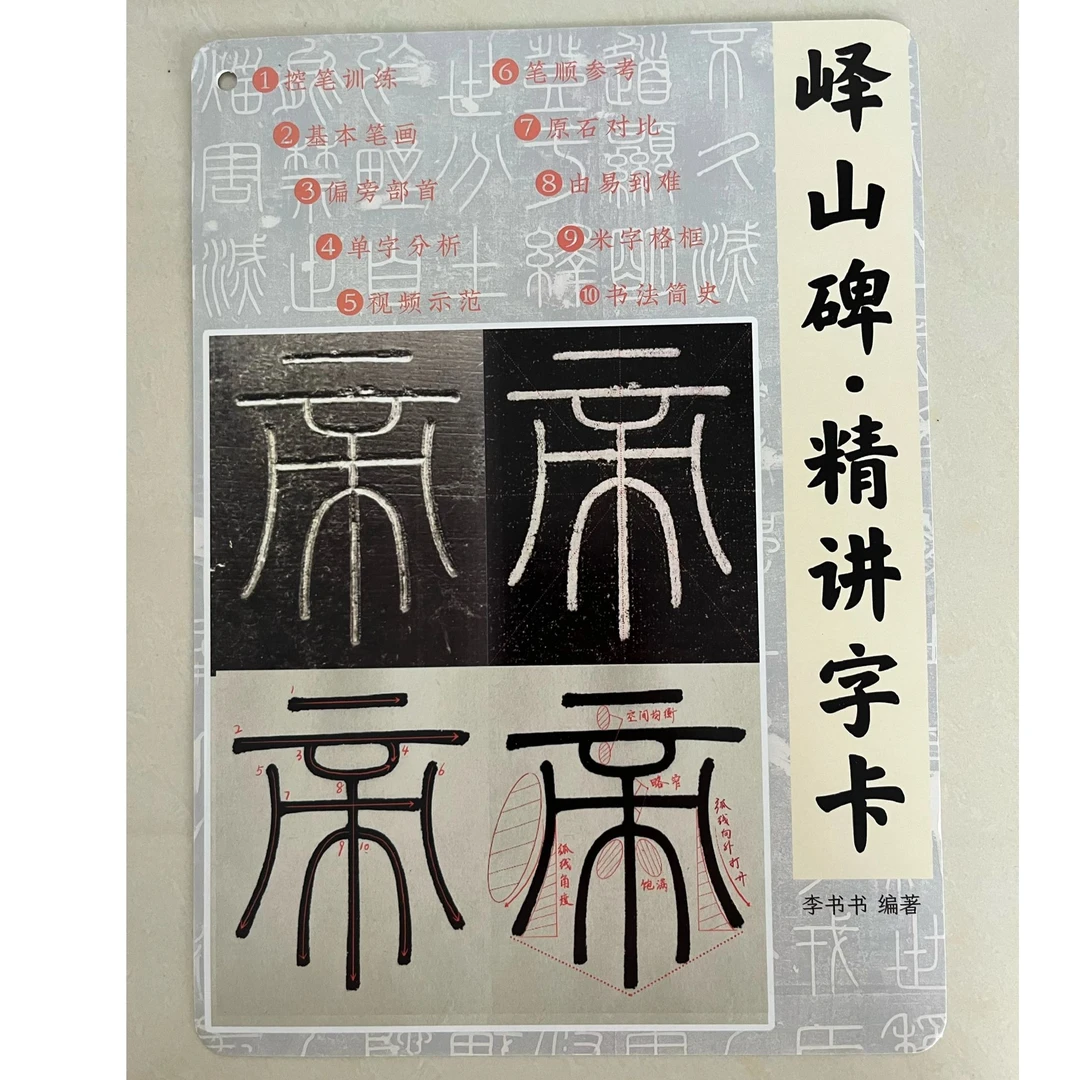 峄山碑·精讲字卡
李书书 编著
1 控笔训练
2 基本笔画
3 偏旁部首
4 单字分析
5 视频示范
6 笔顺参考
7 原石对比
8 由易到难
9 米字格框
10 书法简史
帝 帝
帝 帝
1
2
3 4
5 6
7
8
9 10
空间均衡
略窄
弧线向外打开
弧线角度
饱满